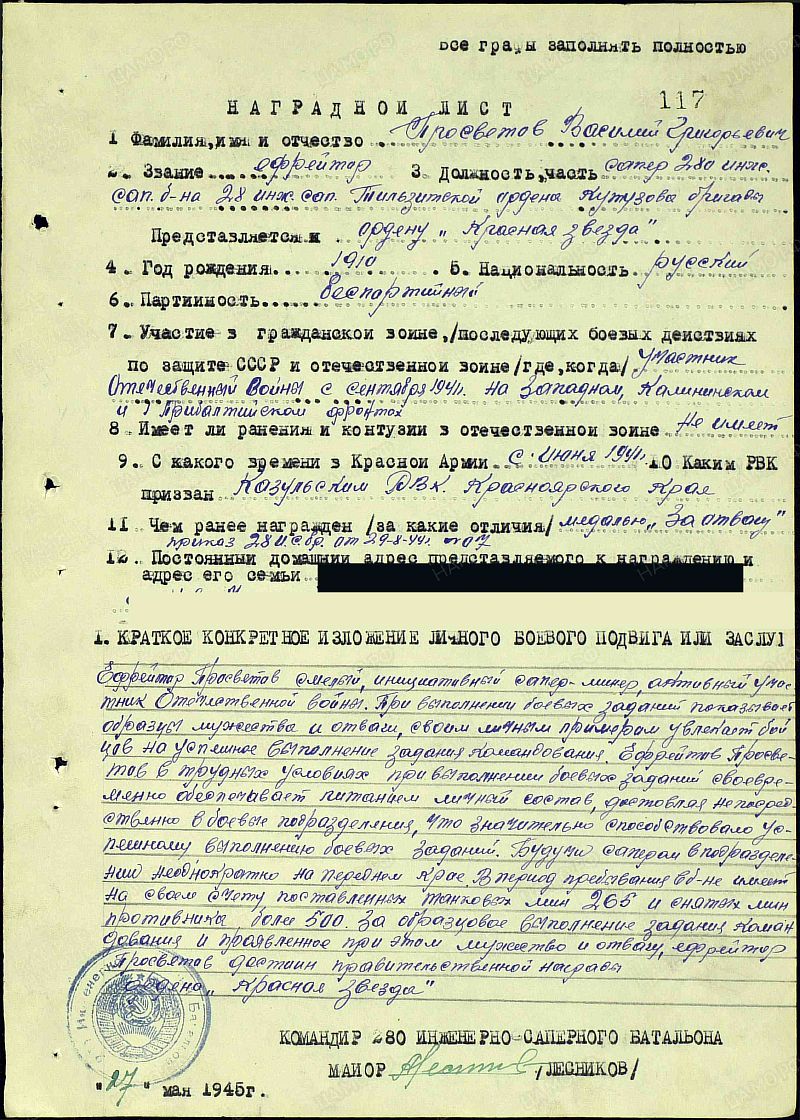 Все графы заполнять полностью
НАГРАДНОЙ ЛИСТ 117
1 Фамилия,имя и отчество Просветов Василий Григорьевич
2. Звание ефрейтор 3 Должность,часть сапер 280 инж.
сап. б-на 28 инж. сап. Тильзитской ордена Кутузова бригады
Представляется к ордену „Красная звезда"
4. Год рождения 1910 5. Национальность русский
6. Партийность Беспартийный
7. Участие в гражданской войне,/последующих боевых действиях
по защите СССР и отечественной войне/где,когда/ Участник
Отечественной Войны с сентября 1941г. на Западном, Калининском
и I Прибалтийском фронтах
8 Имеет ли ранения и контузии в отечественной войне Не имеет
9. С какого времени в Красной Армии с июня 1941г. 10 Каким РВК
призван Казульским РВК. Красноярского Края
11 Чем ранее награжден /за какие отличия/ медалью „За отвагу"
приказ 28 исбр. от 29-8-44г. №07
12. Постоянный домашний адрес представляемого к награждению и
адрес его семьи
1. КРАТКОЕ КОНКРЕТНОЕ ИЗЛОЖЕНИЕ ЛИЧНОГО БОЕВОГО ПОДВИГА ИЛИ ЗАСЛУГ
Ефрейтор Просветов смелый, инициативный сапер-минер, активный учас-
тник Отечественной войны. При выполнении боевых заданий показывает
образцы мужества и отваги, своим личным примером увлекает бой
цов на успешное выполнение задания командования. Ефрейтов Просве-
тов в трудных условиях при выполнении боевых заданий своевре-
менно обеспечивает питанием личный состав, доставляя непосред-
ственно в боевые подразделения, что значительно способствовало ус-
пешному выполнению боевых заданий. Будучи сапером в подразделе-
нии неоднократно на переднем крае. В период пребывания в б-не имеет
на своем счету поставленных танковых мин 265 и снятых мин
противника более 500. За образцовое выполнение задания коман
дования и проявленное при этом мужество и отвагу, ефрейтор
Просветов достоин правительственной награды
Ордена „Красная звезда"
КОМАНДИР 280 ИНЖЕНЕРНО-САПЕРНОГО БАТАЛЬОНА
МАЙОР /ЛЕСНИКОВ/
"27" мая 1945г.